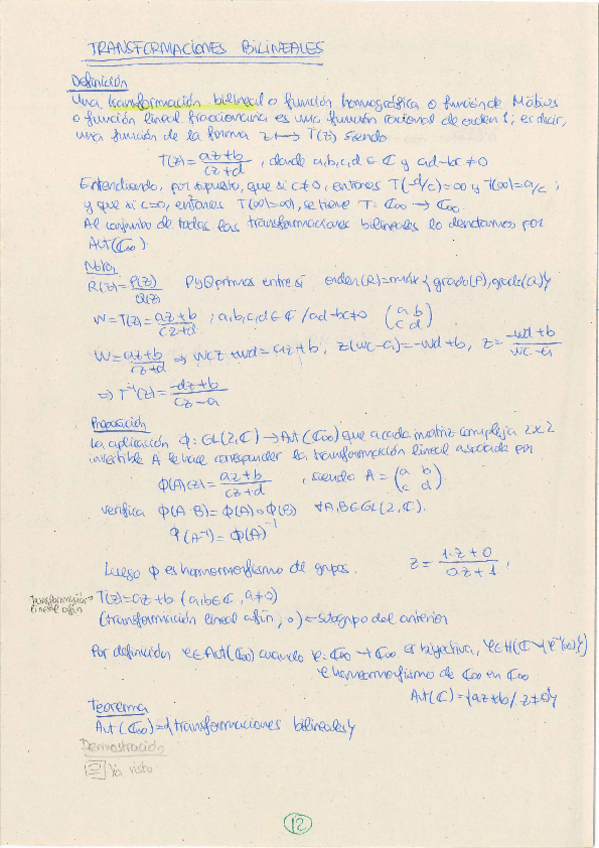 TRANSFORMACIONES BILINEALES
Definición
Una transformación bilineal o función homográfica o función de Möbius
o función lineal fraccionaria es una función racional de orden 1; es decir,
una función de la forma z ↦ T(z) siendo
T(z) = (az+b)/(cz+d) , donde a,b,c,d ∈ ℂ y ad-bc ≠ 0
Entendiendo, por supuesto, que si c≠0, entonces T(-d/c)=∞ y T(∞)=a/c ;
y que si c=0, entonces T(∞)=∞, se tiene T: ℂ∞ → ℂ∞.
Al conjunto de todas las transformaciones bilineales lo denotamos por
Aut(ℂ∞).
Nota
R(z) = P(z)/Q(z) P y Q primos entre sí orden(R)=máx{grado(P), grado(Q)}
W = T(z) = (az+b)/(cz+d) ; a,b,c,d ∈ ℂ / ad-bc≠0 (a b
c d)
W = (az+b)/(cz+d) ⇒ wcz+wd = az+b, z(wc-a) = -wd+b, z = (-wd+b)/(wc-a)
⇒ T⁻¹(z) = (-dz+b)/(cz-a)
Proposición
La aplicación Φ: GL(2,ℂ) → Aut(ℂ∞) que a cada matriz compleja 2x2
invertible A le hace corresponder la transformación lineal asociada por
Φ(A)(z) = (az+b)/(cz+d) , siendo A = (a b
c d)
verifica Φ(A·B) = Φ(A)∘Φ(B) ∀A,B∈GL(2,ℂ).
Φ(A⁻¹) = Φ(A)⁻¹
Luego Φ es homomorfismo de grupos. z = (1·z+0)/(0·z+1) ,
Transformación lineal afín → T(z)=az+b (a,b∈ℂ, a≠0)
(transformación lineal afín, ∘) ← subgrupo del anterior
Por definición φ∈Aut(ℂ∞) cuando φ: ℂ∞ → ℂ∞ es biyectiva, φ∈H(ℂ∖{φ⁻¹(∞)})
φ homeomorfismo de ℂ∞ en ℂ∞
Aut(ℂ) = {az+b / z≠0}
Teorema
Aut(ℂ∞) = {transformaciones bilineales}
Demostración
⊇ Ya visto
12